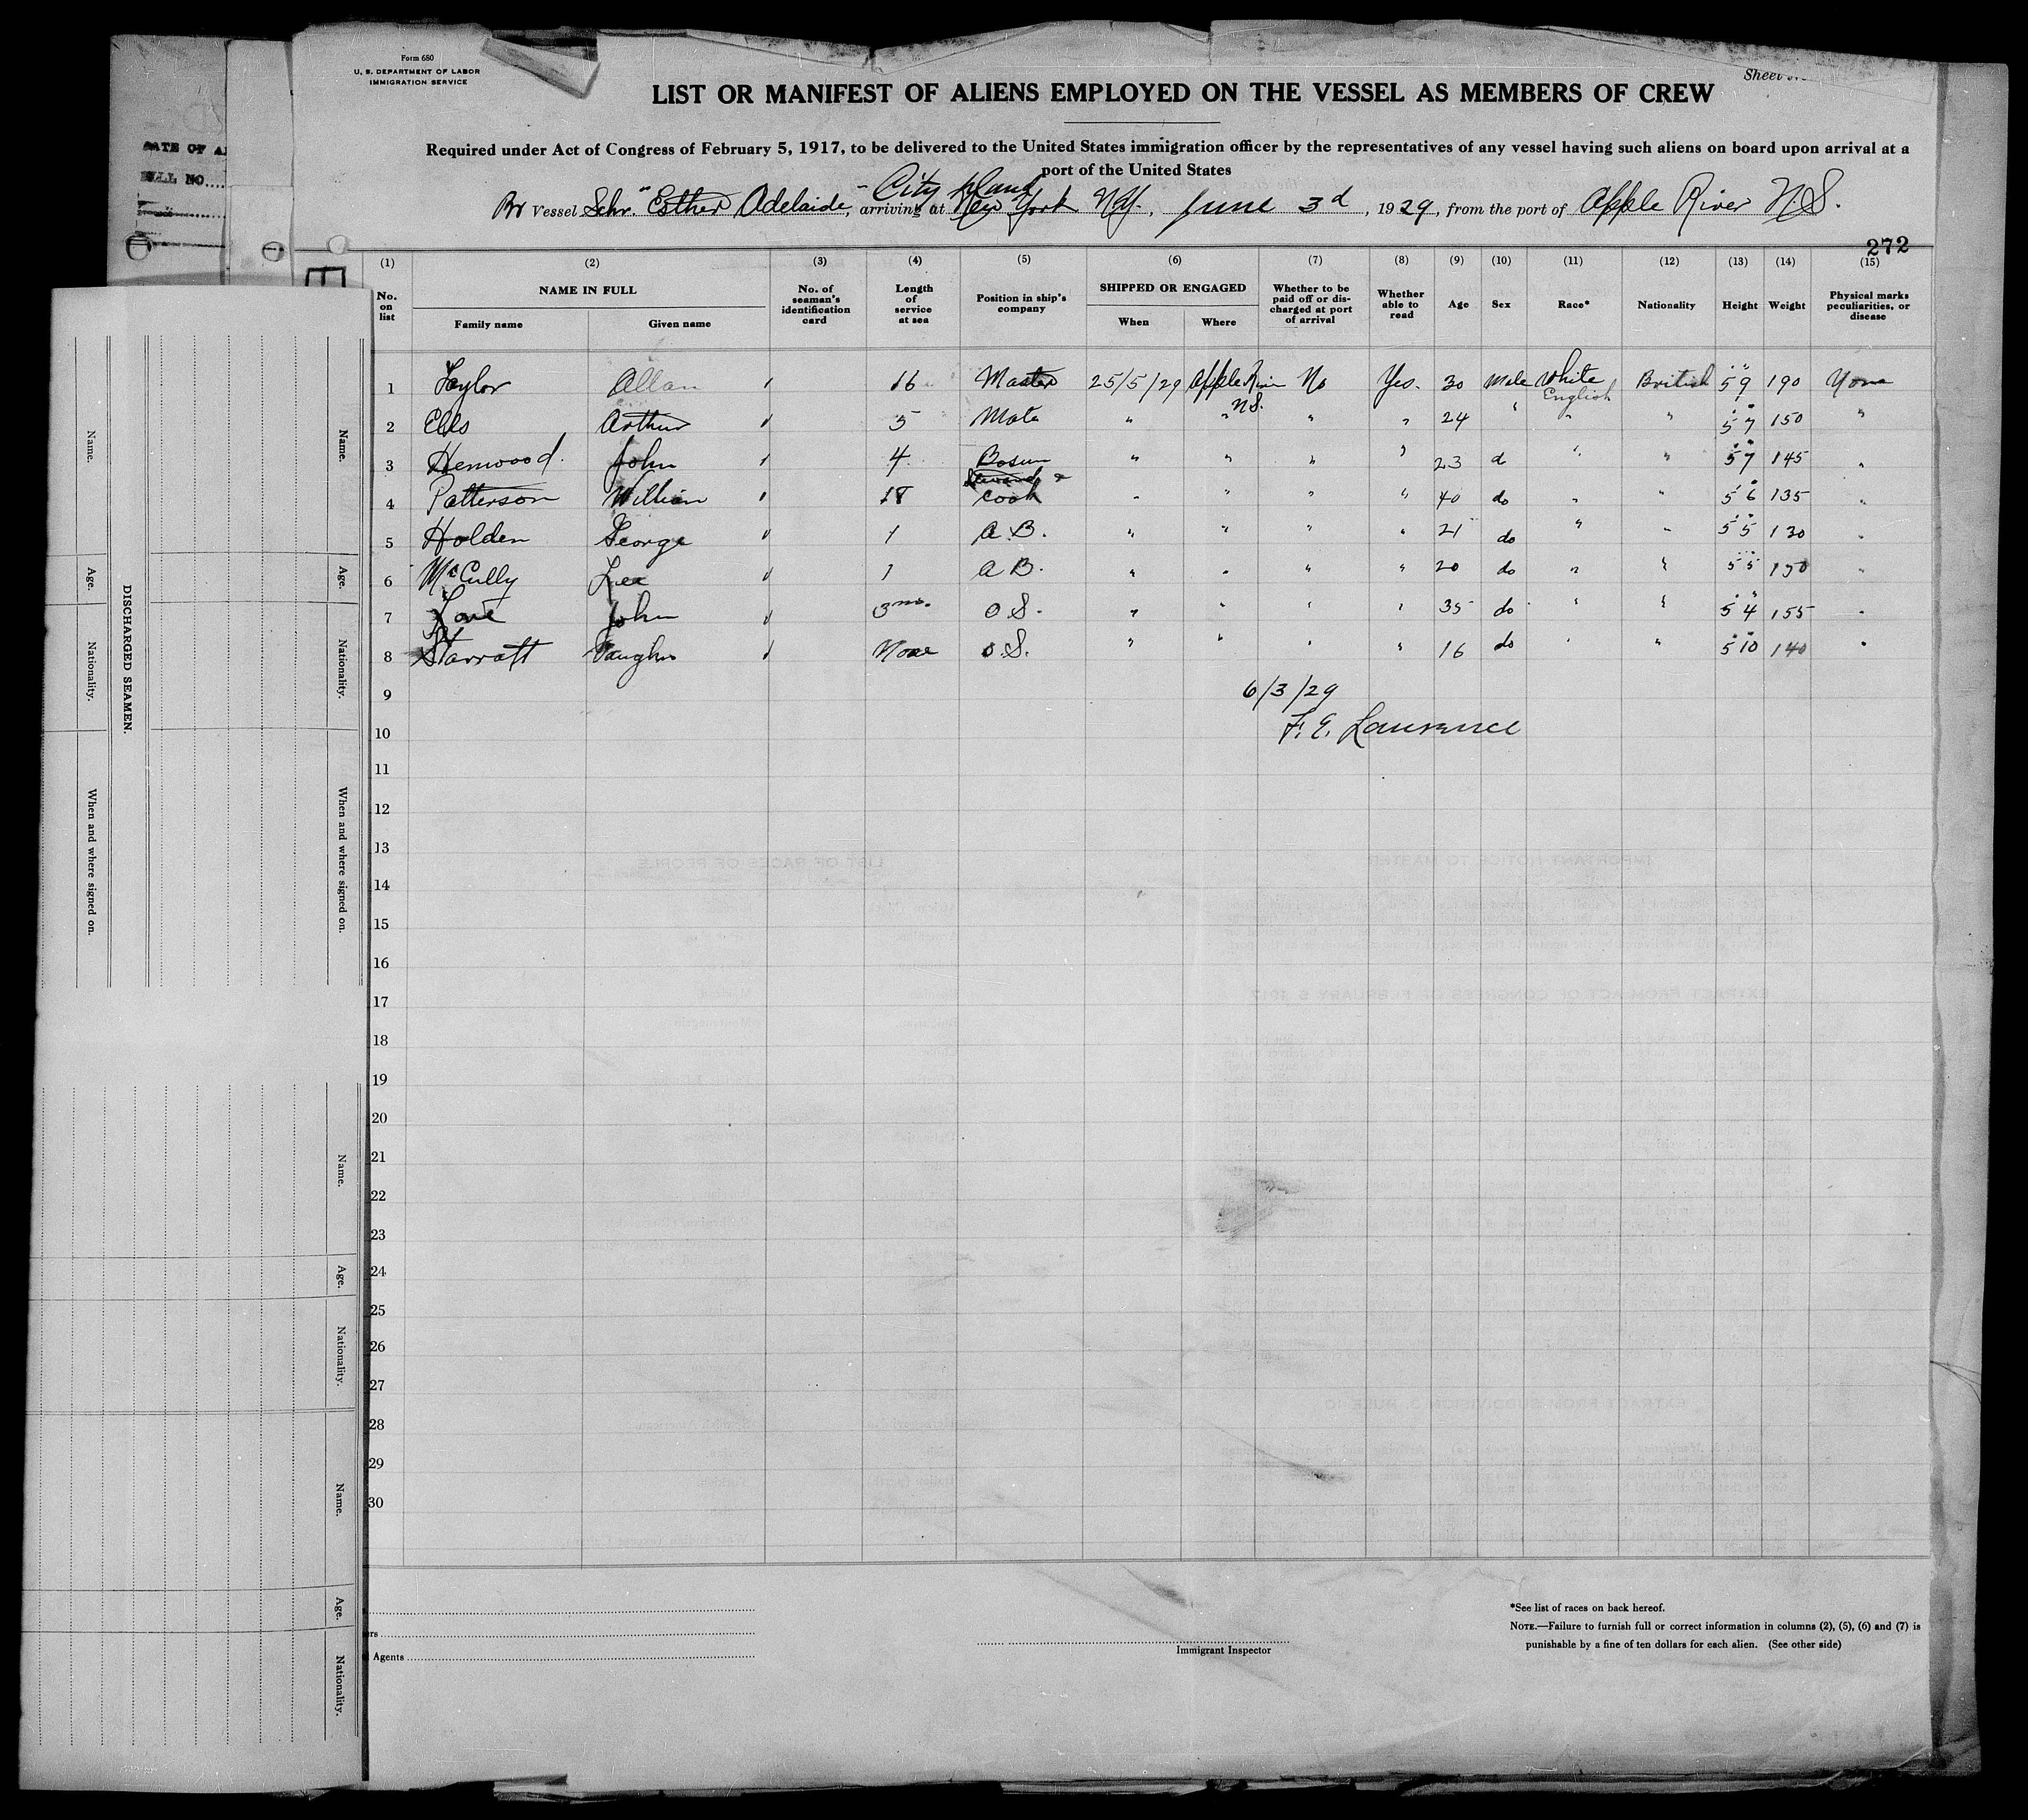 Form 680
U. S. DEPARTMENT OF LABOR
IMMIGRATION SERVICE
Sheet
LIST OR MANIFEST OF ALIENS EMPLOYED ON THE VESSEL AS MEMBERS OF CREW
Required under Act of Congress of February 5, 1917, to be delivered to the United States immigration officer by the representatives of any vessel having such aliens on board upon arrival at a
port of the United States
City Island
Br Vessel Schr. "Esther Adelaide", arriving at New York N.Y., June 3d, 1929, from the port of Apple River N.S.
272
(1) (2) (3) (4) (5) (6) (7) (8) (9) (10) (11) (12) (13) (14) (15)
No. on list NAME IN FULL Family name Given name No. of seaman's identification card Length of service at sea Position in ship's company SHIPPED OR ENGAGED When Where Whether to be paid off or discharged at port of arrival Whether able to read Age Sex Race* Nationality Height Weight Physical marks peculiarities, or disease
1 Taylor Allan 16 Master 25/5/29 Apple River N.S. No Yes. 30 Male White English British 5' 9" 190 None
2 Arthur 5 Mate " " " " 24 " " " 5' 7" 150 "
3 Henwood John 4 Bosun " " " " 23 d " " 5' 7" 145 "
4 Patterson William 18 Steward & Cook " " " " 40 do " " 5' 6" 135 "
5 Holden George 1 A.B. " " " " 21 do " " 5' 5" 130 "
6 McCully Lee 1 A B. " " " " 20 do " " 5' 5" 150 "
7 Love John 3 mos. O S. " " " " 35 do " " 5' 4" 155 "
8 Starratt Vaughn None O.S. " " " " 16 do " " 5' 10" 140 "
9 6/3/29
10 F. E. Lawrence
11
12
13
14
15
16
17
18
19
20
21
22
23
24
25
26
27
28
29
30
rs
Agents
Immigrant Inspector
*See list of races on back hereof.
NOTE.—Failure to furnish full or correct information in columns (2), (5), (6) and (7) is
punishable by a fine of ten dollars for each alien. (See other side)
DATE OF
BILL NO.
DISCHARGED SEAMEN.
Name. Age. Nationality. When and where signed on.
Name. Age. Nationality. When and where signed on.
Name. Age. Nationality.
Name. Age. Nationality.